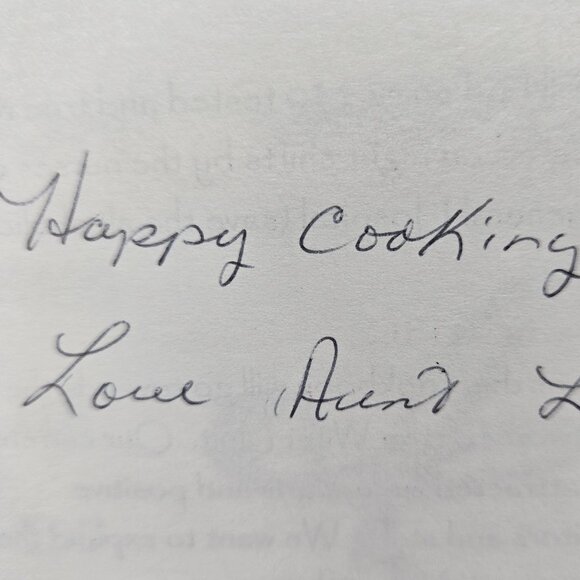 Happy Cooking
Love Aunt L